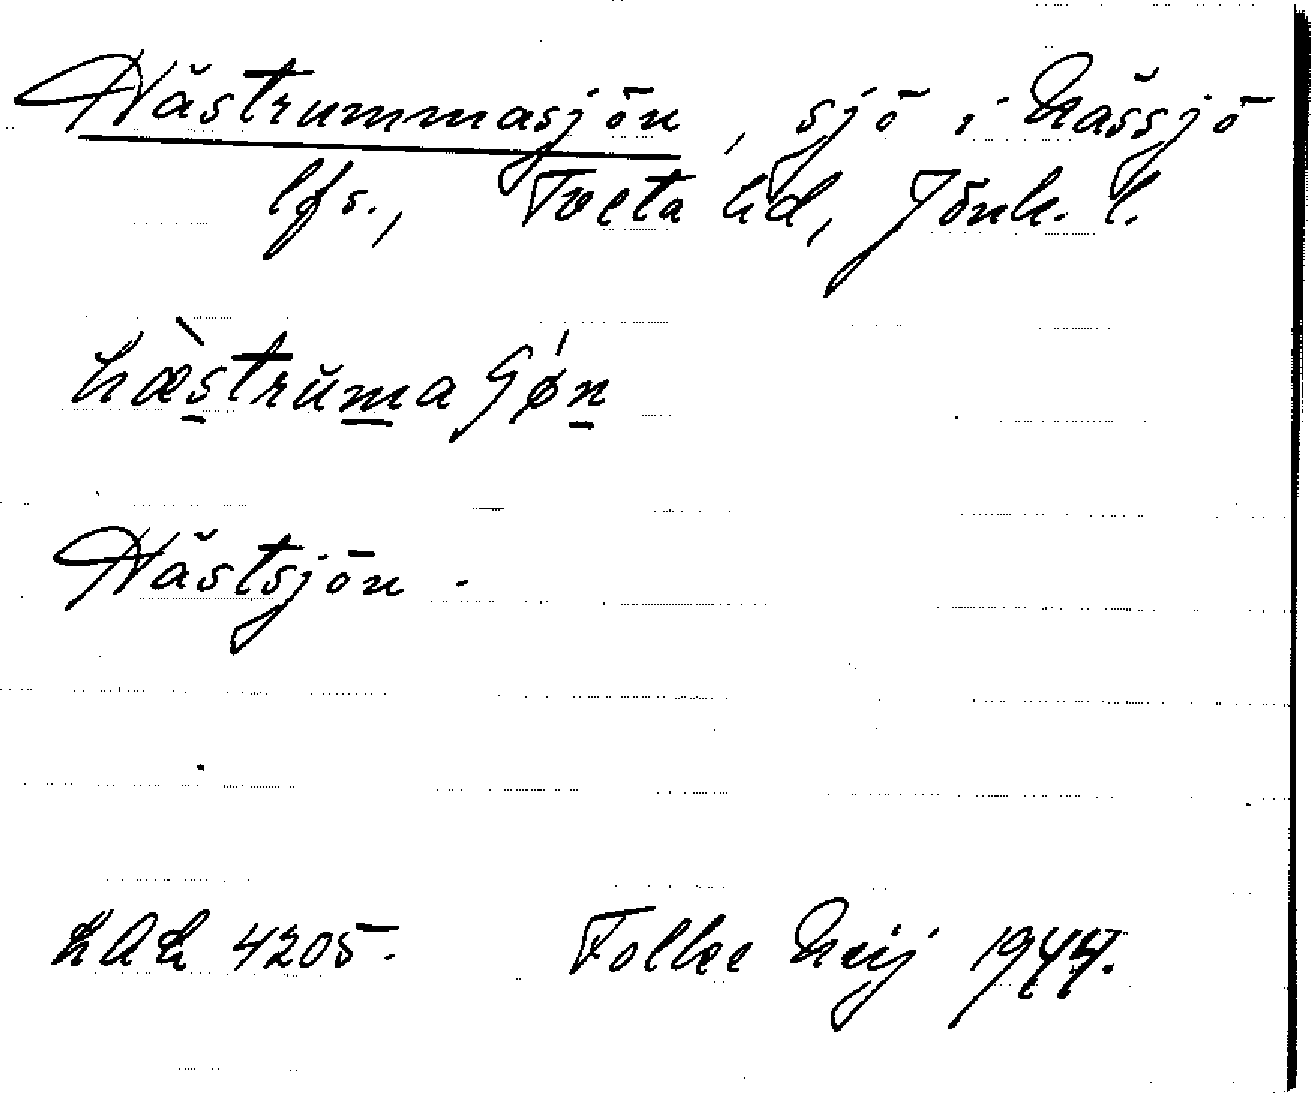 Hästrummasjön, sjö i Nässjö
lfs., Tveta hd, Jönk. l.
hæ̀striumaʃǿn
Hästsjön.
LAL 4205. Folke Neij 1944.